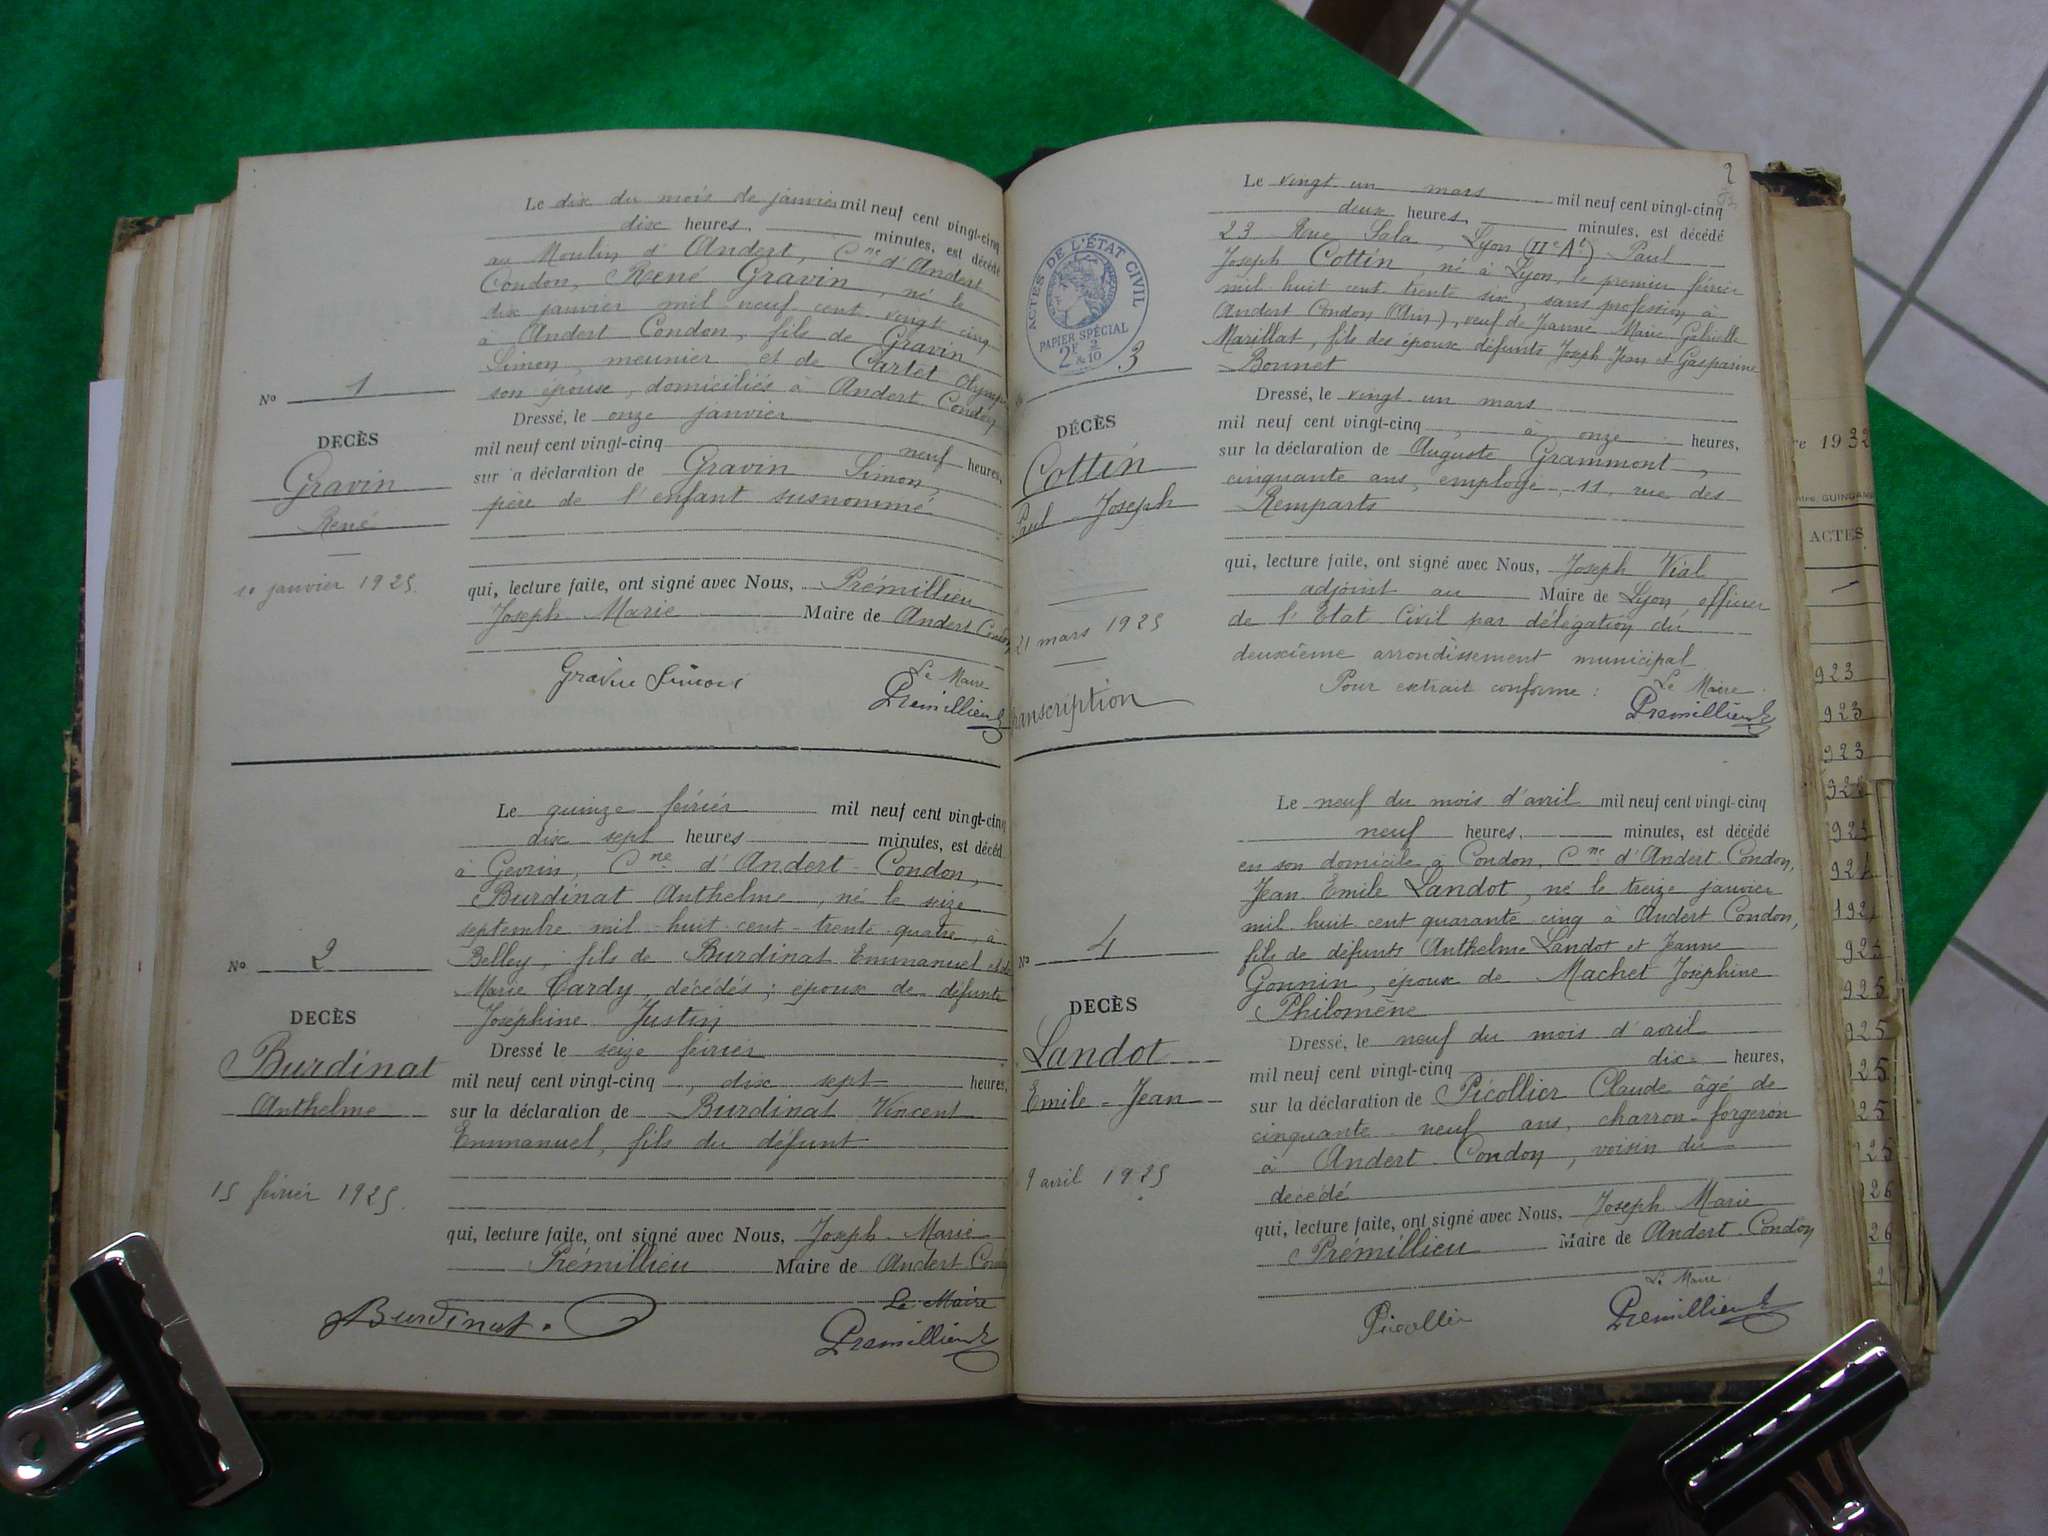 Le dix du mois de janvier mil neuf cent vingt-cinq
dix heures, minutes, est décédé
au Moulin d'Andert, Cne d'Andert
Condon, René Gravin, né le
dix janvier mil neuf cent vingt cinq
à Andert Condon, fils de Gravin
Simon, meunier et de Cartet Olympe
son épouse, domiciliés à Andert Condon
No 1
DECÈS
Gravin
René
10 janvier 1925.
Dressé, le onze janvier
mil neuf cent vingt-cinq neuf heures,
sur a déclaration de Gravin Simon,
père de l'enfant susnommé
qui, lecture faite, ont signé avec Nous, Prémillieu
Joseph Marie Maire de Andert Condon
Gravin Simon
Le Maire
Premillieu
Le quinze février mil neuf cent vingt-cinq
dix sept heures minutes, est décéd
à Gevrin, Cne d'Andert-Condon,
Burdinat Anthelme, né le seize
septembre mil huit cent trente quatre, à
Belley, fils de Burdinat Emmanuel et de
Marie Cardy, décédés; époux de défunte
Joséphine Justin
No 2
DECÈS
Burdinat
Anthelme
15 février 1925.
Dressé le seize février
mil neuf cent vingt-cinq, dix sept heures,
sur la déclaration de Burdinat Vincent
Emmanuel, fils du défunt
qui, lecture faite, ont signé avec Nous, Joseph Marie
Prémillieu Maire de Andert Condon
Burdinat.
Le Maire
Premillieu
2
Le vingt un mars mil neuf cent vingt-cinq
deux heures, minutes, est décédé
23 Rue Sala, Lyon (IIe At) Paul
Joseph Cottin, né à Lyon, le premier février
mil huit cent trente six, sans profession à
Andert Condon (Ain), veuf de Jeanne Marie Gabrielle
Marillat, fils des époux défunts Joseph Jean et Gasparine
Bonnet
ACTES DE L'ÉTAT CIVIL
PAPIER SPÉCIAL
2F & 2/10
3
DÉCÈS
Cottin
Paul Joseph
21 mars 1925
transcription
Dressé, le vingt un mars
mil neuf cent vingt-cinq, à onze heures,
sur la déclaration de Auguste Grammont,
cinquante ans, employé, 11, rue des
Remparts
qui, lecture faite, ont signé avec Nous, Joseph Vial
adjoint au Maire de Lyon officier
de l'Etat Civil par délégation du
deuxième arrondissement municipal
Pour extrait conforme :
Le Maire
Premillieu
Le neuf du mois d'avril mil neuf cent vingt-cinq
neuf heures, minutes, est décédé
en son domicile à Condon, Cne d'Andert-Condon,
Jean Emile Landot, né le treize janvier
mil huit cent quarante cinq à Andert Condon,
fils de défunts Anthelme Landot et Jeanne
Gonnin, époux de Machet Joséphine
Philomène
No 4
DECÈS
Landot
Emile-Jean
9 avril 1925
Dressé, le neuf du mois d'avril
mil neuf cent vingt-cinq dix heures,
sur la déclaration de Picollier Claude âgé de
cinquante-neuf ans, charron-forgeron
à Andert-Condon, voisin du
décédé
qui, lecture faite, ont signé avec Nous, Joseph Marie
Prémillieu Maire de Andert-Condon
Picollier
Le Maire
Premillieu
re 1932
GUINGAMP
ACTES
923
923
923
925
925
925
25
25
25
26
26